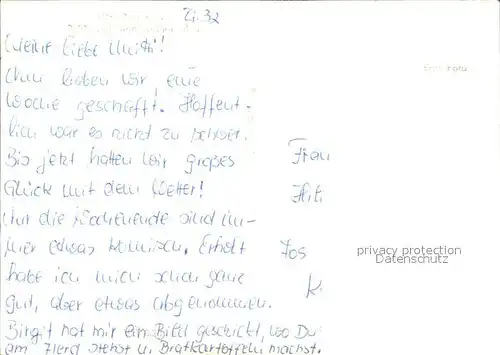 Zi. 32
Meine liebe Mutti!
Nun haben wir eine
Woche geschafft. Hoffent-
lich war es nicht zu schwer.
Bis jetzt hatten wir großes
Frau
Glück mit dem Wetter!
Nur die Wochenende sind im-
mer etwas komisch. Erholt
Jos
privacy protection
Datenschutz
habe ich mich schon ganz
K
gut, aber etwas abgenommen.
Birgit hat mir ein Bild geschickt, wo Du
am Herd stehst u. Bratkartoffeln machst.